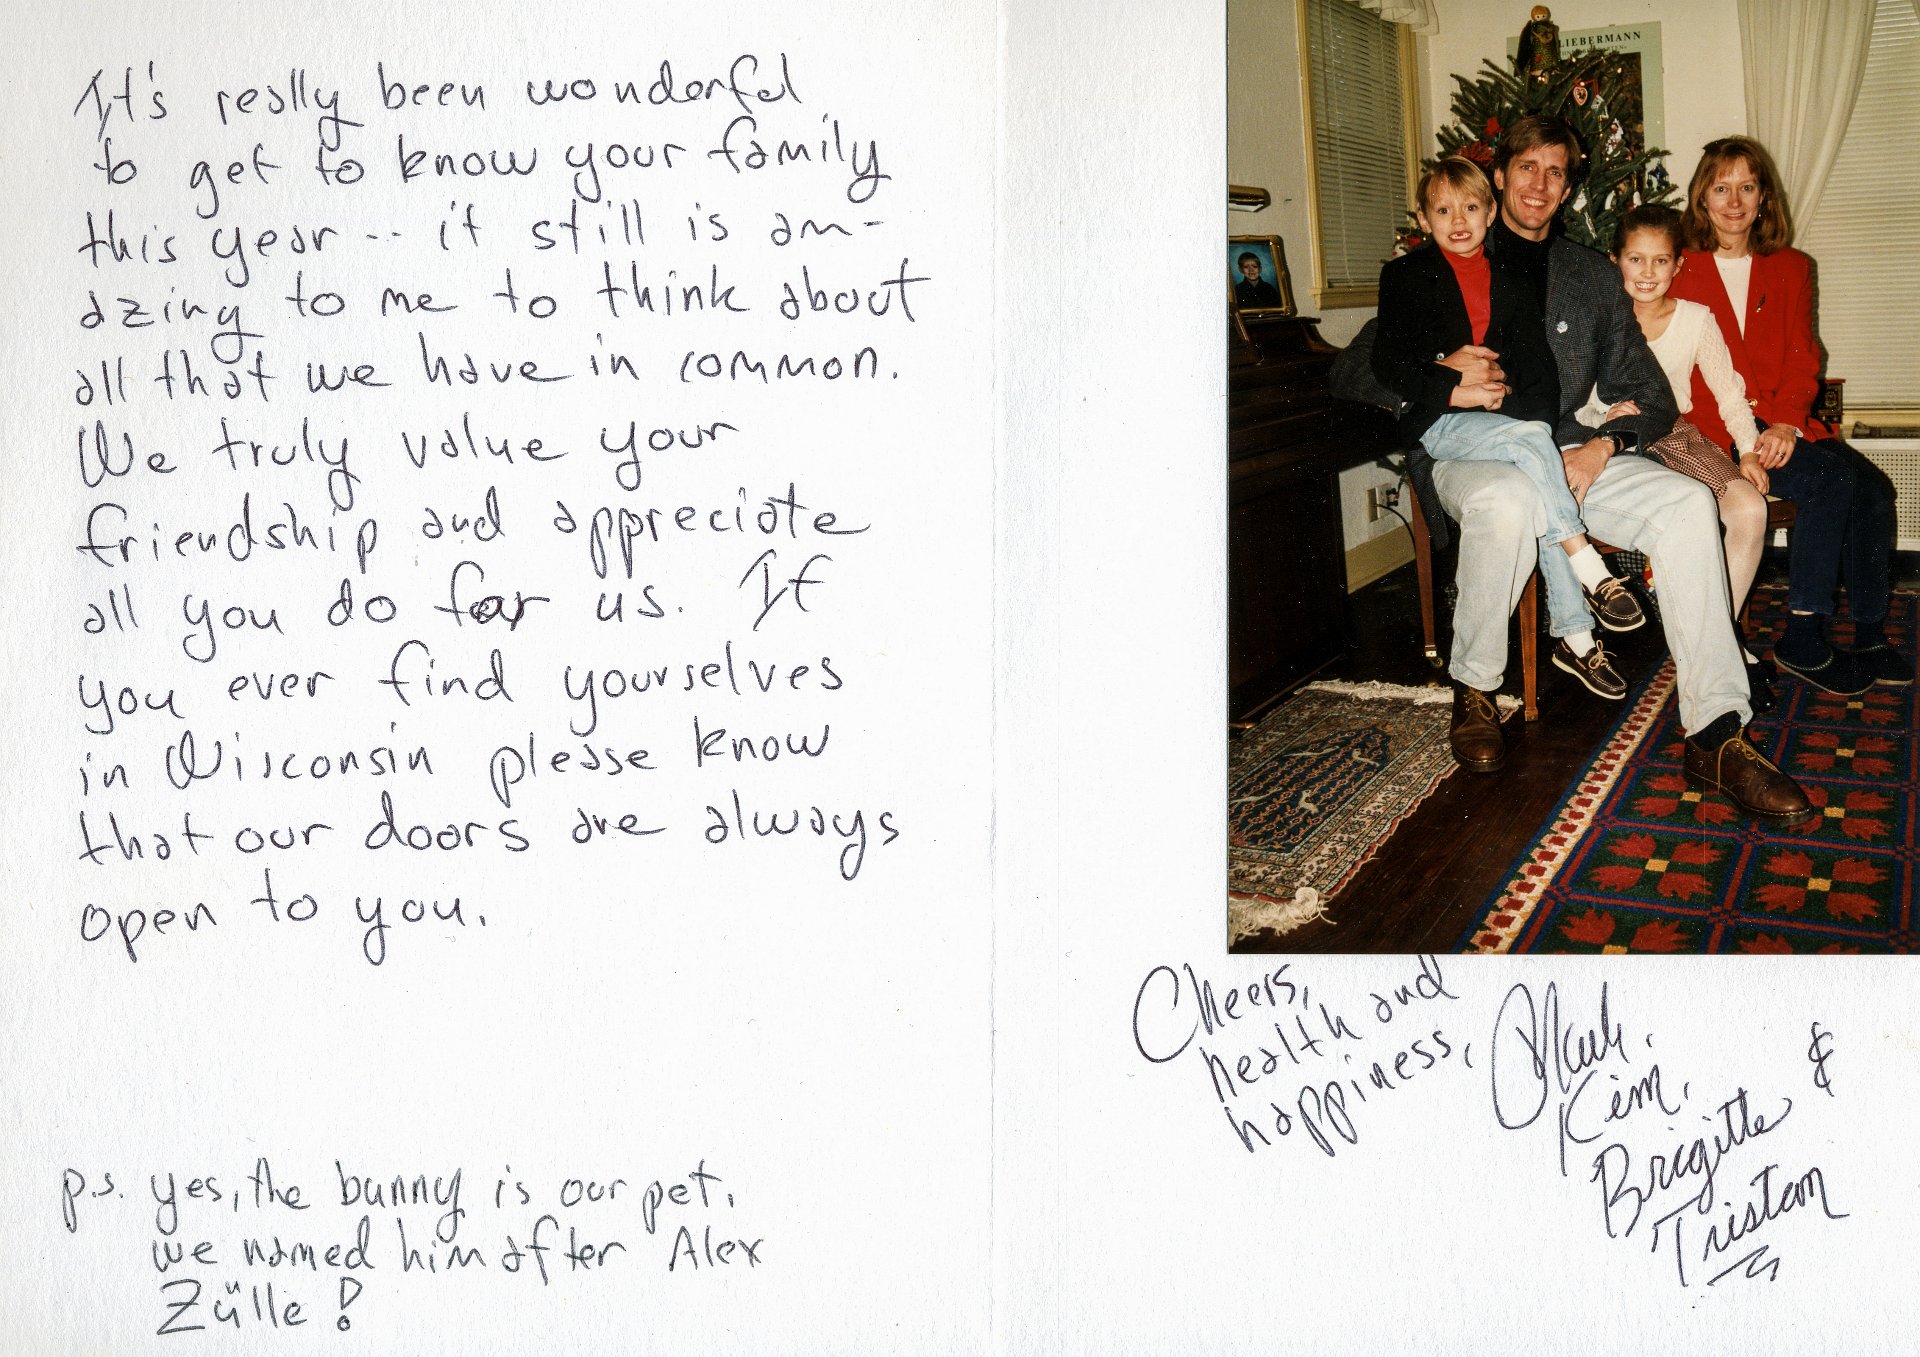 It's really been wonderful
to get to know your family
this year -- it still is am-
azing to me to think about
all that we have in common.
We truly value your
friendship and appreciate
all you do for us. If
you ever find yourselves
in Wisconsin please know
that our doors are always
open to you.
p.s. yes, the bunny is our pet.
we named him after Alex
Zülle!
LIEBERMANN
Cheers,
health and
happiness,
Mark,
Kim,
Brigitte &
Tristan